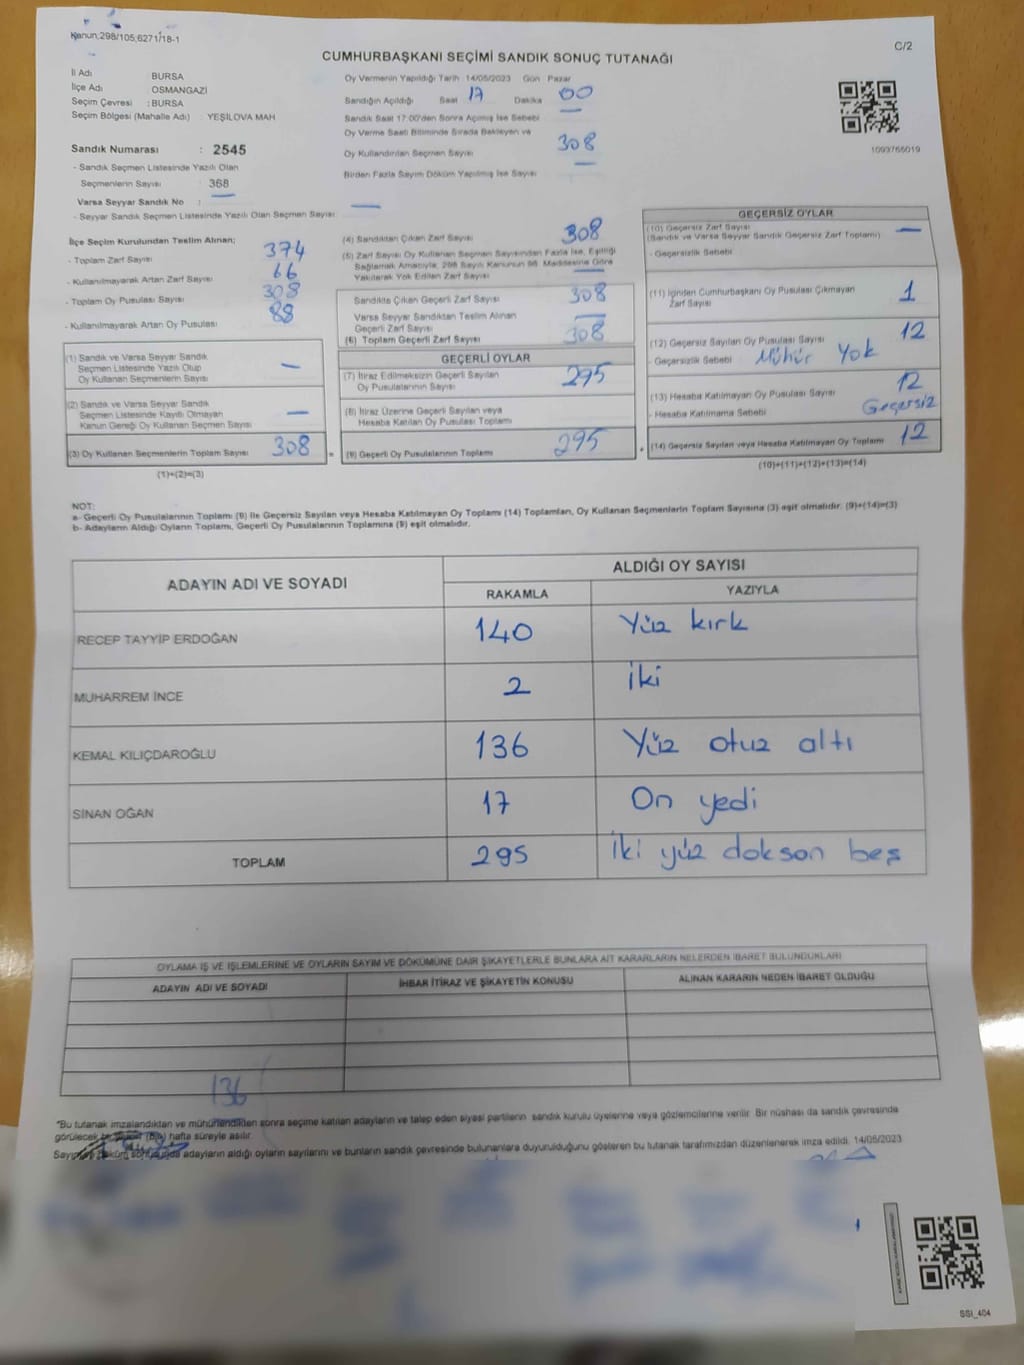 Kanun:298/105;6271/18-1
C/2
CUMHURBAŞKANI SEÇİMİ SANDIK SONUÇ TUTANAĞI
İl Adı BURSA
İlçe Adı OSMANGAZİ
Seçim Çevresi : BURSA
Seçim Bölgesi (Mahalle Adı) YEŞİLOVA MAH
Sandık Numarası : 2545
- Sandık Seçmen Listesinde Yazılı Olan
Seçmenlerin Sayısı : 368
Varsa Seyyar Sandık No : —
- Seyyar Sandık Seçmen Listesinde Yazılı Olan Seçmen Sayısı: —
Oy Vermenin Yapıldığı Tarih :14/05/2023 Gün Pazar
Sandığın Açıldığı Saat 17 Dakika 00
Sandık Saat 17:00'den Sonra Açılmış İse Sebebi —
Oy Verme Saati Bitiminde Sırada Bekleyen ve
Oy Kullandırılan Seçmen Sayısı 308
Birden Fazla Sayım Döküm Yapılmış İse Sayısı —
1093765019
İlçe Seçim Kurulundan Teslim Alınan;
- Toplam Zarf Sayısı 374
- Kullanılmayarak Artan Zarf Sayısı 66
- Toplam Oy Pusulası Sayısı 308
- Kullanılmayarak Artan Oy Pusulası 88
(1) Sandık ve Varsa Seyyar Sandık
Seçmen Listesinde Yazılı Olup
Oy Kullanan Seçmenlerin Sayısı —
(2) Sandık ve Varsa Seyyar Sandık
Seçmen Listesinde Kayıtlı Olmayan
Kanun Gereği Oy Kullanan Seçmen Sayısı —
(3) Oy Kullanan Seçmenlerin Toplam Sayısı 308
(1)+(2)=(3)
(4) Sandıktan Çıkan Zarf Sayısı 308
(5) Zarf Sayısı Oy Kullanan Seçmen Sayısından Fazla İse, Eşitliği
Sağlamak Amacıyla, 298 Sayılı Kanunun 98. Maddesine Göre
Yakılarak Yok Edilen Zarf Sayısı —
Sandıkta Çıkan Geçerli Zarf Sayısı 308
Varsa Seyyar Sandıktan Teslim Alınan
Geçerli Zarf Sayısı —
(6) Toplam Geçerli Zarf Sayısı 308
GEÇERLİ OYLAR
(7) İtiraz Edilmeksizin Geçerli Sayılan
Oy Pusulalarının Sayısı 295
(8) İtiraz Üzerine Geçerli Sayılan veya
Hesaba Katılan Oy Pusulası Toplamı
(9) Geçerli Oy Pusulalarının Toplamı 295
GEÇERSİZ OYLAR
(10) Geçersiz Zarf Sayısı
(Sandık ve Varsa Seyyar Sandık Geçersiz Zarf Toplamı) —
- Geçersizlik Sebebi
(11) İçinden Cumhurbaşkanı Oy Pusulası Çıkmayan
Zarf Sayısı 1
(12) Geçersiz Sayılan Oy Pusulası Sayısı 12
- Geçersizlik Sebebi Mühür Yok
(13) Hesaba Katılmayan Oy Pusulası Sayısı 12
- Hesaba Katılmama Sebebi Geçersiz
(14) Geçersiz Sayılan veya Hesaba Katılmayan Oy Toplamı 12
(10)+(11)+(12)+(13)=(14)
NOT:
a- Geçerli Oy Pusulalarının Toplamı (9) ile Geçersiz Sayılan veya Hesaba Katılmayan Oy Toplamı (14) Toplamları, Oy Kullanan Seçmenlerin Toplam Sayısına (3) eşit olmalıdır. (9)+(14)=(3)
b- Adayların Aldığı Oyların Toplamı, Geçerli Oy Pusulalarının Toplamına (9) eşit olmalıdır.
ADAYIN ADI VE SOYADI
ALDIĞI OY SAYISI
RAKAMLA YAZIYLA
RECEP TAYYİP ERDOĞAN 140 Yüz kırk
MUHARREM İNCE 2 İki
KEMAL KILIÇDAROĞLU 136 Yüz otuz altı
SİNAN OĞAN 17 On yedi
TOPLAM 295 İki yüz dokson beş
OYLAMA İŞ VE İŞLEMLERİNE VE OYLARIN SAYIM VE DÖKÜMÜNE DAİR ŞİKAYETLERLE BUNLARA AİT KARARLARIN NELERDEN İBARET BULUNDUKLARI
ADAYIN ADI VE SOYADI İHBAR İTİRAZ VE ŞİKAYETİN KONUSU ALINAN KARARIN NEDEN İBARET OLDUĞU
136
"Bu tutanak imzalandıktan ve mühürlendikten sonra seçime katılan adayların ve talep eden siyasi partilerin sandık kurulu üyelerine veya gözlemcilerine verilir. Bir nüshası da sandık çevresinde
görülecek hafta süreyle asılır.
adayların aldığı oyların sayılarını ve bunların sandık çevresinde bulunanlara duyurulduğunu gösteren bu tutanak tarafımızdan düzenlenerek imza edildi. 14/05/2023
SSI_404